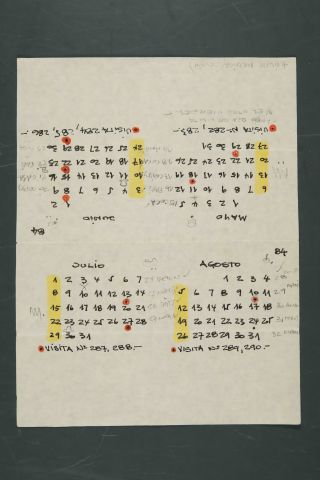 84
MAYO JUNIO
1 2 3 4 5 1 2
6 7 8 9 10 11 12 3 4 5 6 7 8 9
13 14 15 16 17 18 19 10 11 12 13 14 15 16
20 21 22 23 24 25 26 17 18 19 20 21 22 23
27 28 29 30 31 24 25 26 27 28 29 30
VISITA Nº 282, 283.- VISITA 284, 285, 286
84
JULIO AGOSTO
1 2 3 4 5 6 7 1 2 3 4
8 9 10 11 12 13 14 5 6 7 8 9 10 11
15 16 17 18 19 20 21 12 13 14 15 16 17 18
22 23 24 25 26 27 28 19 20 21 22 23 24 25
29 30 31 26 27 28 29 30 31
VISITA Nº 287, 288.- VISITA Nº 289, 290.-